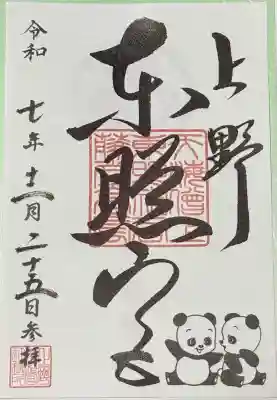 上野
東照宮
令和七年十一月二十五日参拝